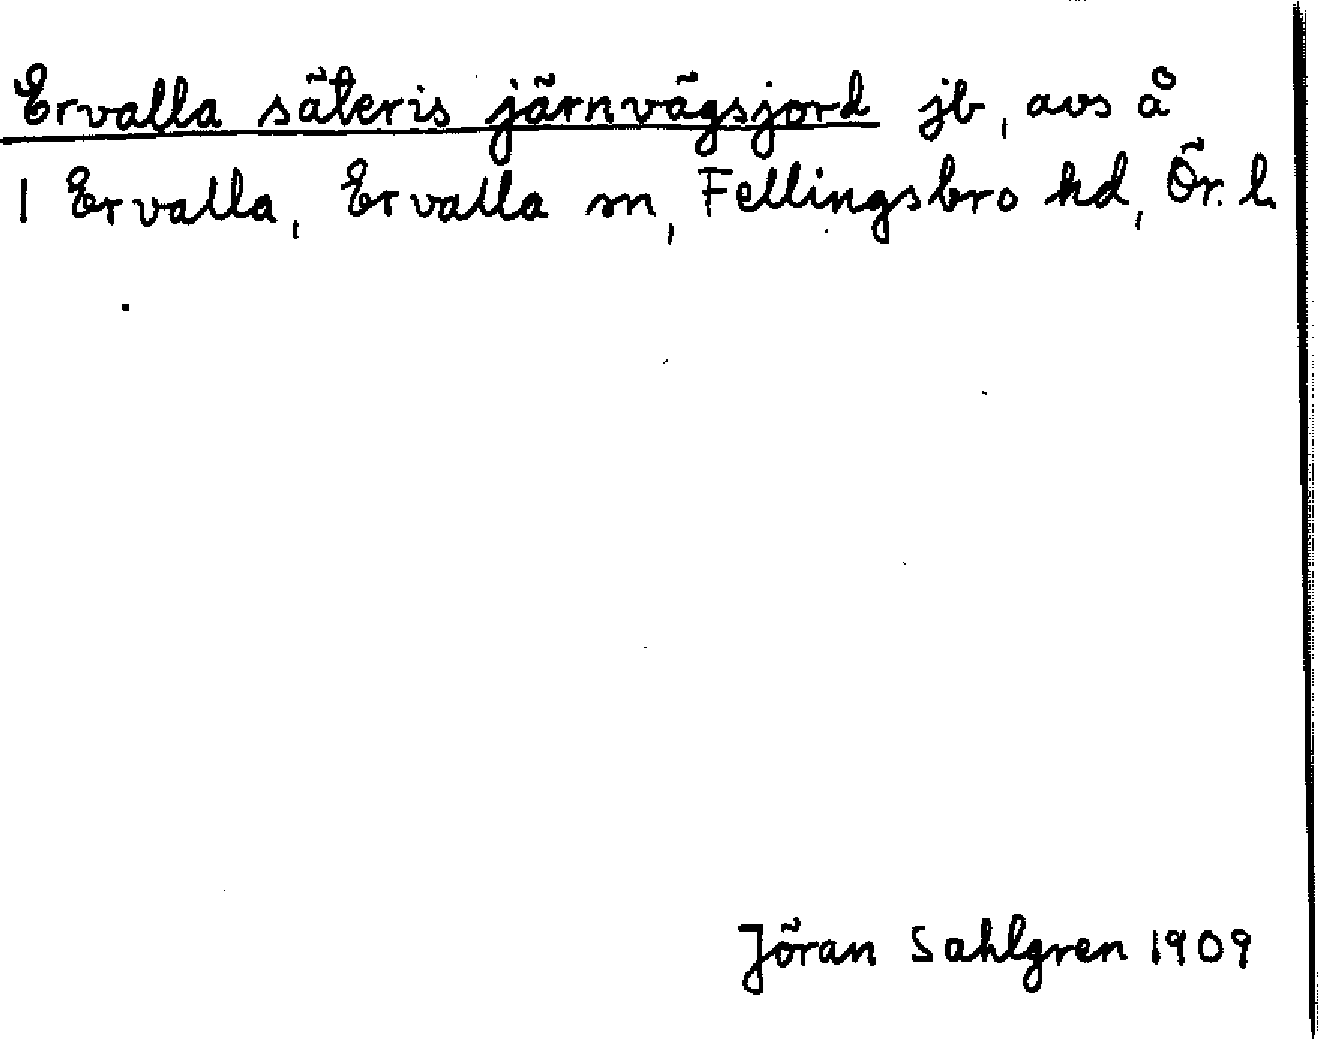 Ervalla säteris järnvägsjord jb, avs å
1 Ervalla, Ervalla sn, Fellingsbro hd, Ör. l.
Jöran Sahlgren 1909